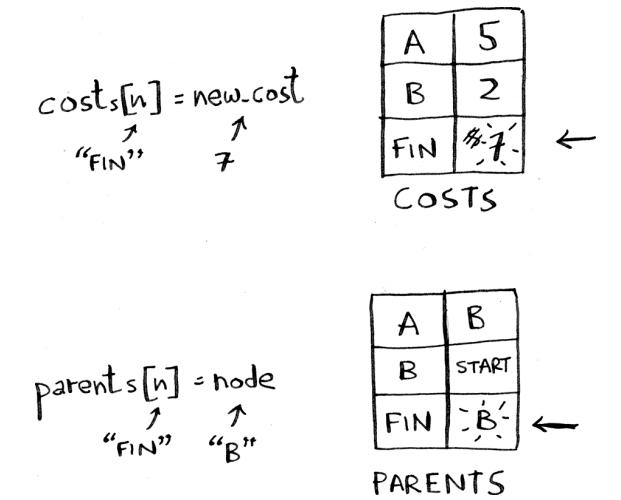 costs[n] = new_cost
"FIN"
7
A 5
B 2
FIN 7
COSTS
parents[n] = node
"FIN" "B"
A B
B START
FIN B
PARENTS